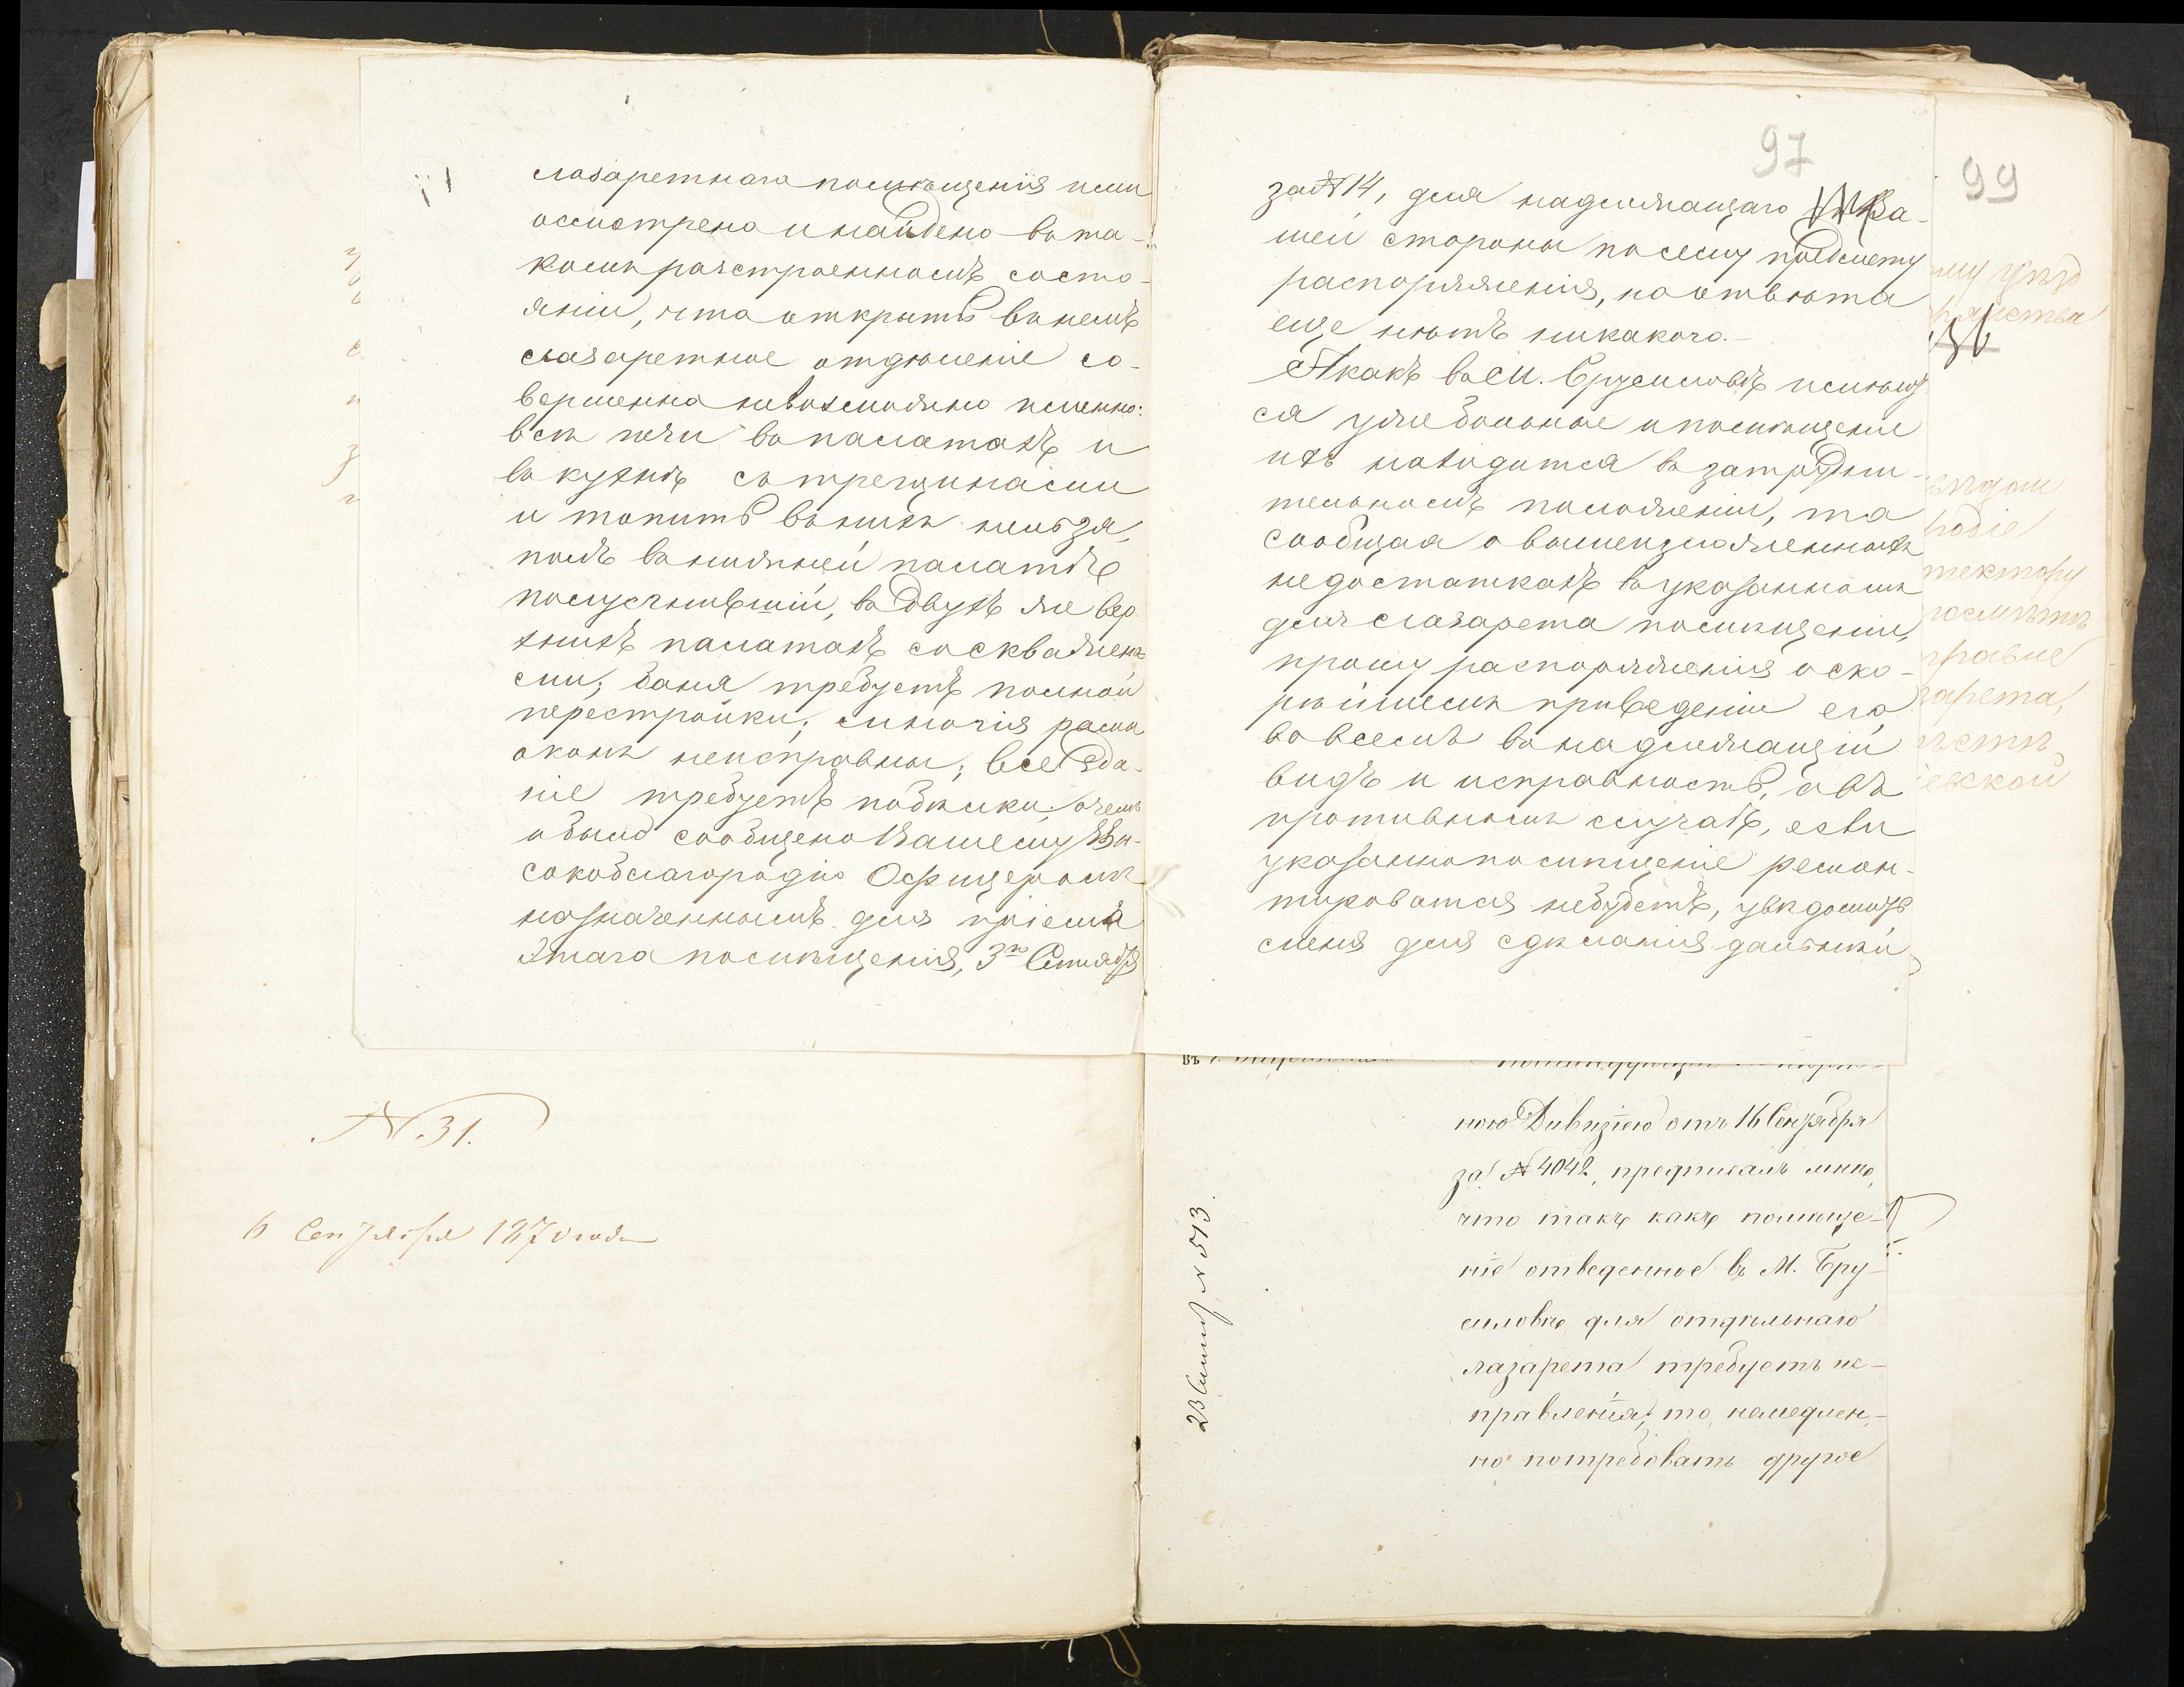 лазаретнаго помѣщенія мои
осмотрено и найдено въ та-
комъ разстроенномъ состо-
яніи, что открыть въ немъ
лазаретное отдѣленіе со-
вершенно невозможно именно:
всѣ печи въ палатахъ и
въ кухнѣ съ трещинами
и топить въ нихъ нельзя,
полъ въ нижней палатѣ
полусгнившій, въ двухъ же вер
хнихъ палатахъ со скважина
ми; баня требуетъ полной
перестройки; многія рамы
оконъ неисправны; все зда-
ніе требуетъ побѣлки; о чемъ
и было сообщено Вашему Вы-
сокоблагородію Офицеромъ
назначеннымъ для пріема
этаго помѣщенія, 3го Сентября
N. 31.
6 Сентября 1870 года
97
99
за № 14, для надлежащаго Ва-
шей стороны посему предмету
распоряженія, но отвѣта
еще нѣтъ никакого.
А какъ въ м. Брусиловѣ имѣют
ся уже больные и помѣщеніе
ихъ находится въ затрудни-
тельномъ положеніи, то
сообщая о вышеизложенныхъ
недостаткахъ въ указанномъ
для лазарета помѣщеніи,
прошу распоряженія о ско-
рѣйшемъ приведеніи его
во всемъ въ надлежащій
видъ и исправность, а въ
противномъ случаѣ, если
указанно помѣщеніе ремон-
тироватся небудетъ, увѣдомить
меня для сдѣланія дальнѣй
въ г.
ною Дивизіею отъ 16 Сентября
за № 4042, предписалъ мнѣ,
что такъ какъ помѣще-
ніе отведенное въ М. Бру-
силовѣ для отдѣльнаго
лазарета требуетъ ис-
правленія, то немедлен-
но потребовать другое
23 Сентяб. № 513.
ству
тектору
зарета,